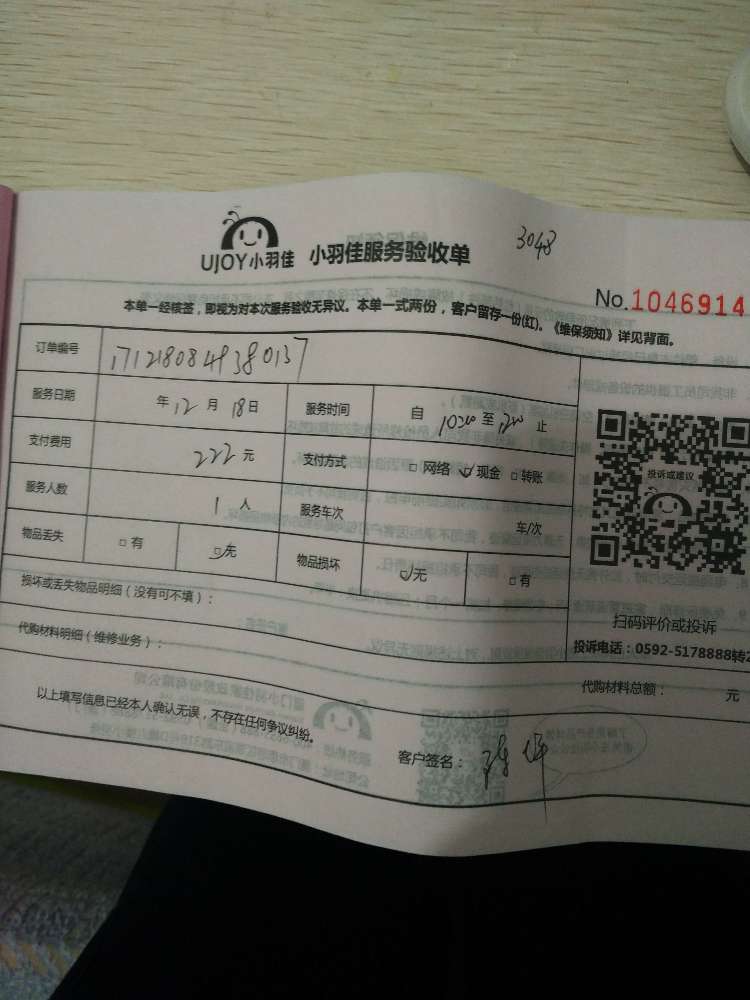 3048
UJOY小羽佳 小羽佳服务验收单
No.1046914
本单一经核签，即视为对本次服务验收无异议。本单一式两份，客户留存一份(红)。《维保须知》详见背面。
订单编号 1712180849380137
服务日期 年12月18日 服务时间 自1020至1200止
支付费用 222元 支付方式 □网络 ☑现金 □转账
服务人数 1人 服务车次 车/次
物品丢失 □有 ☑无 物品损坏 ☑无 □有
投诉或建议
扫码评价或投诉
投诉电话：0592-5178888转2
损坏或丢失物品明细（没有可不填）：
代购材料明细（维修业务）：
代购材料总额： 元
以上填写信息已经本人确认无误，不存在任何争议纠纷。
客户签名：